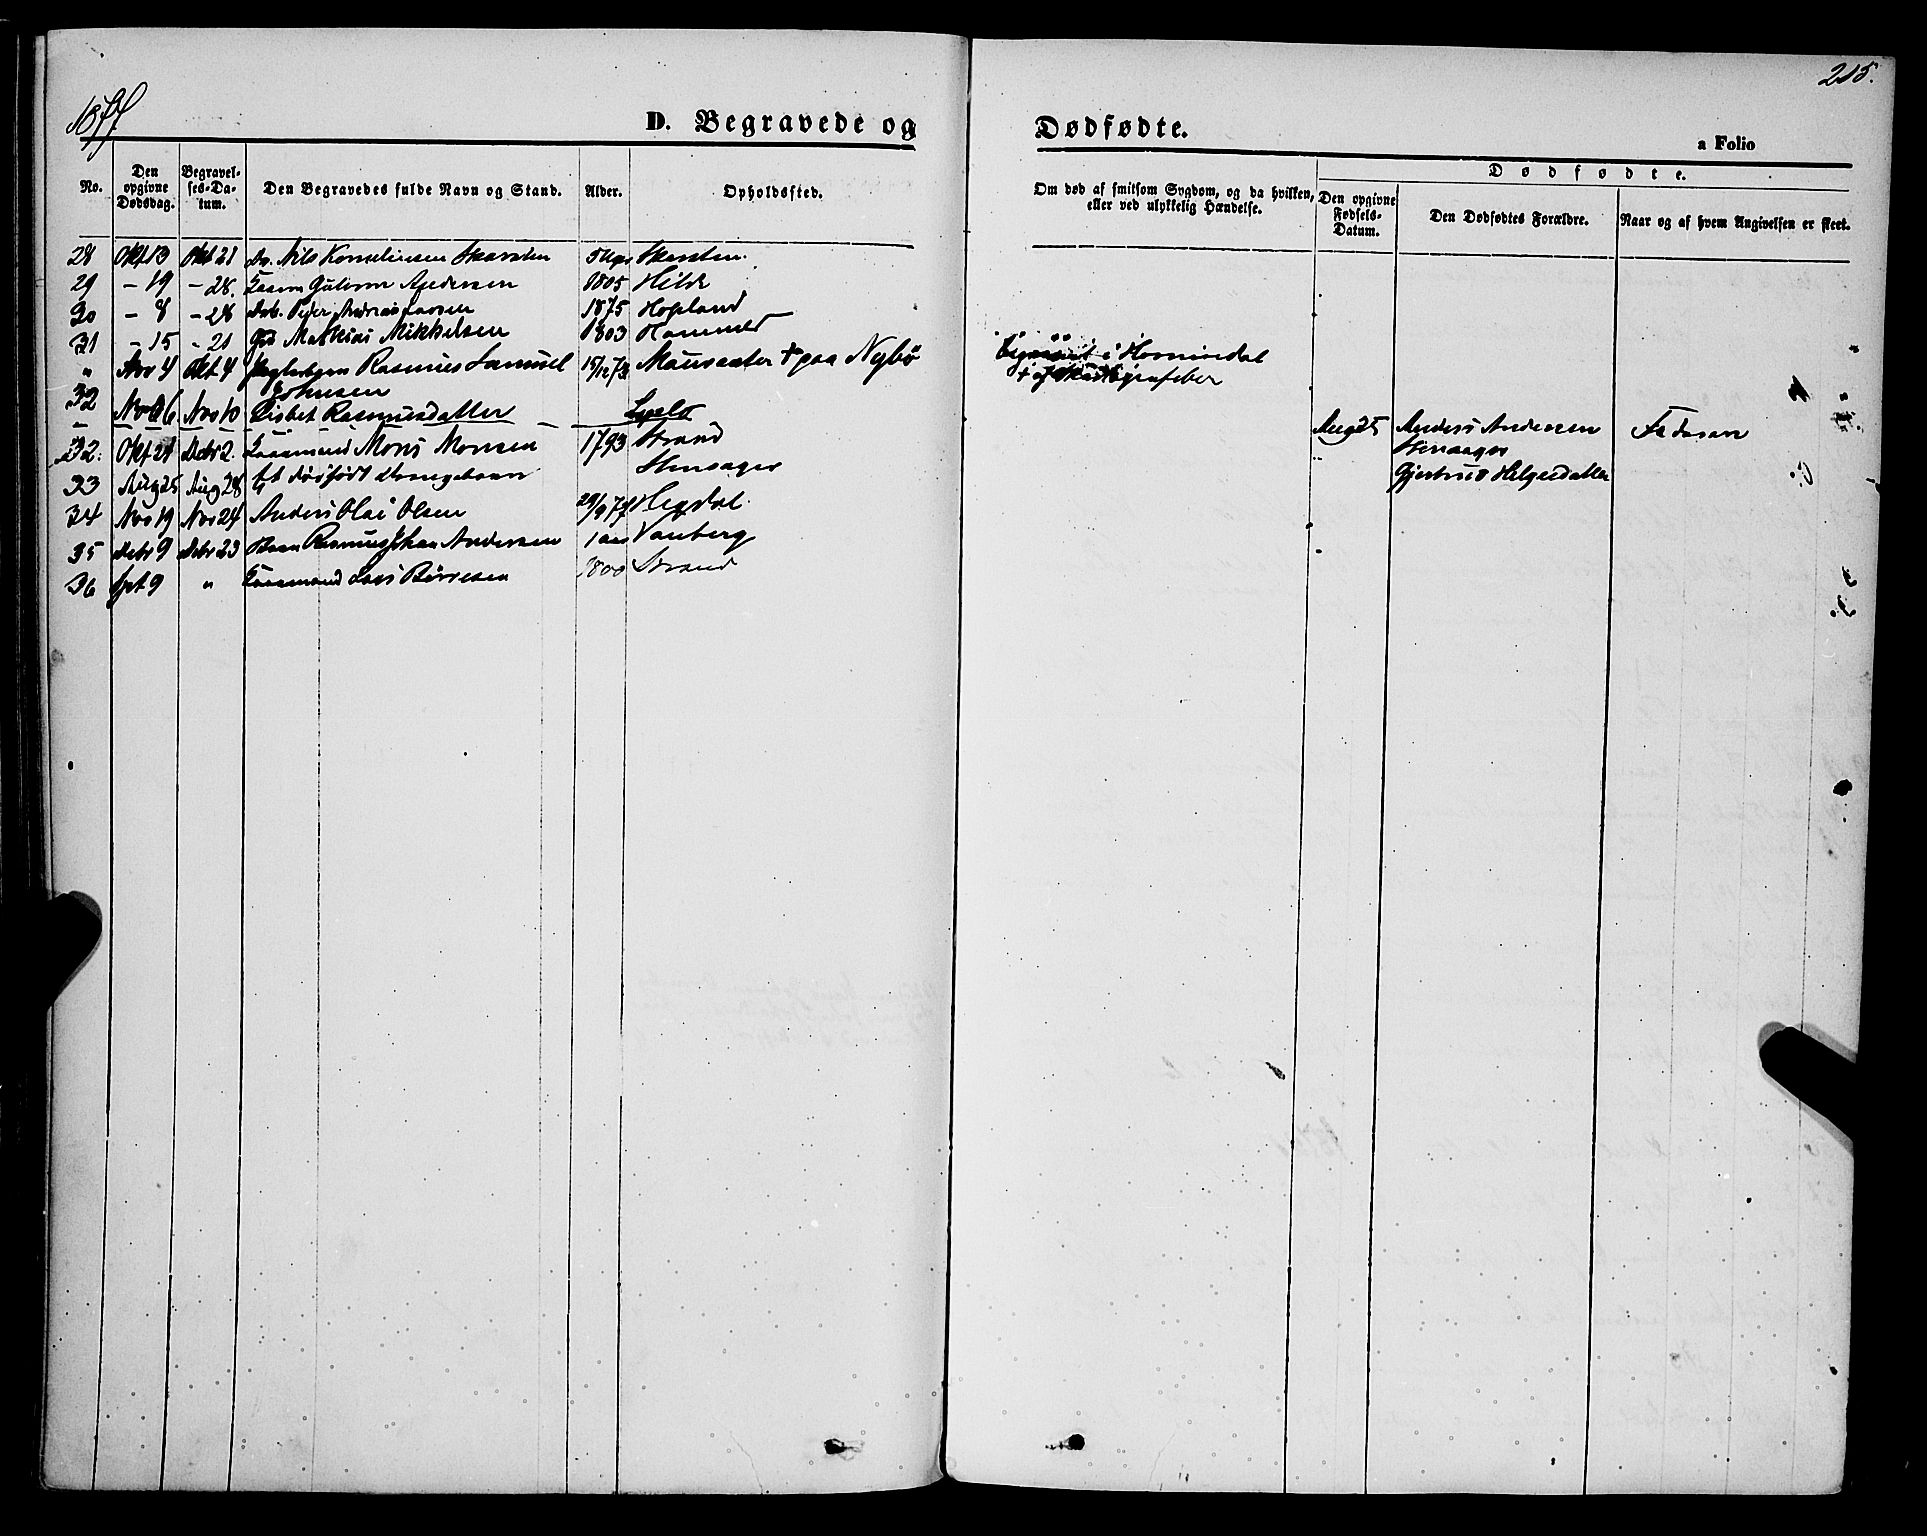 1877
215.
D. Begravede og Dødfødte.
a Folio
No.
Den opgivne Dødsdag.
Begravelses-Datum.
Den Begravedes fulde Navn og Stand.
Alder.
Opholdssted.
Om død af smitsom Sygdom, og da hvilken, eller ved ulykkelig Hændelse.
Dødfødte.
Den opgivne Fødsels-Datum.
Den Dødfødtes Forældre.
Naar og af hvem Angivelsen er skeet.
28 Okt 13 Okt 21 Nils Korneliusen Skarsten Skarsten.
29 - 19 - 28. Andersen 1805 Hilde
30 - 8 - 28 Peder Andreas Larsen 1875 Hopland
31 - 15 - 21 Mathias Mikkelsen 1803 Hammer
" Nov 4 Okt 4 Rasmus Samuel 15/12 73 Maursæter + paa Nybø
Johnsen
i Hornindal
+ af
32 Nov 6 Nov 10 Lisbet Rasmusdatter
32. Okt 21 Debr 2. Mons Monsen 1793 Strand
33 Aug 25 Aug 28 Et dødfødt Drengebarn Hensager
Aug 25 Anders Andersen Faderen
Hensager
Gjertrud Helgesdatter
34 Nov 19 Nov 24 Anders Olai Olsen 29/9 77 Hegdal
35 Debr 9 Debr 23 Barn Rasmus Johan Andersen 1 aar Vanberg
36 Spt 9 " Lars Børresen 1800 Strand